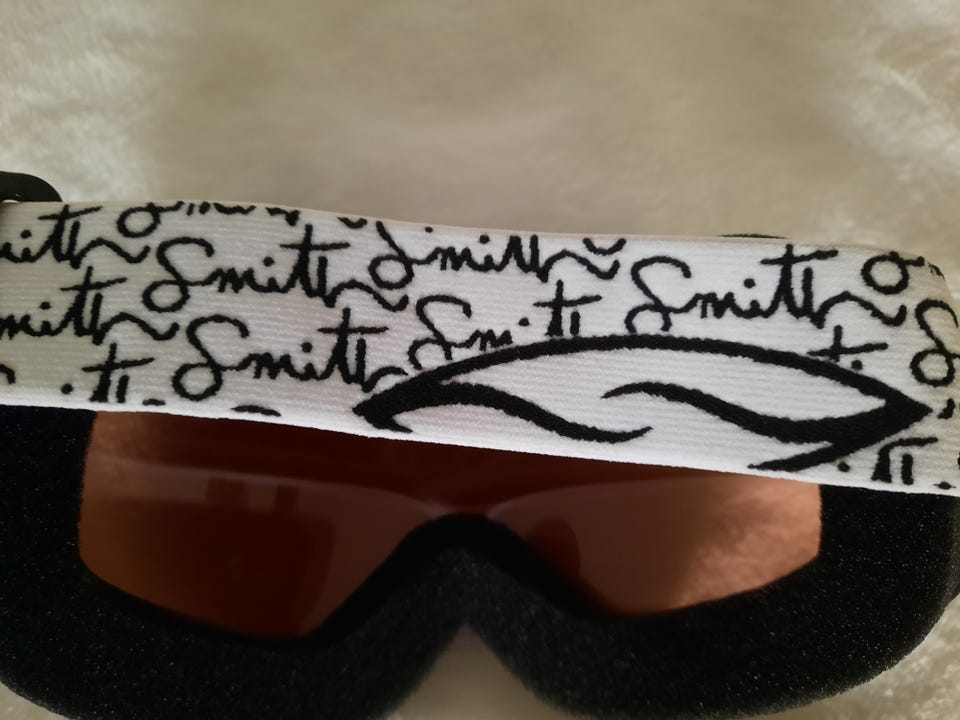 Smith Smith Smith Smith
Smith Smith Smith